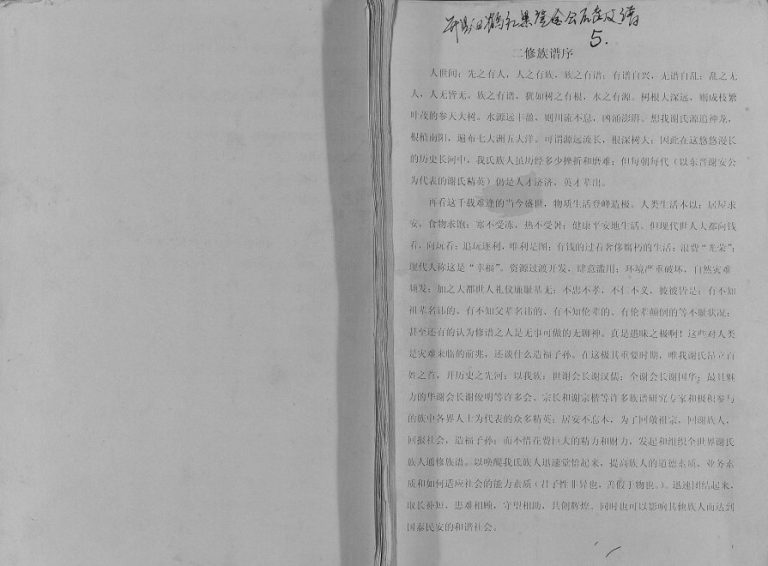 5.
二修族谱序
人世间：先之有人，人之有族，族之有谱；有谱自兴，无谱自乱；乱之无
人，人无皆无，族之有谱，犹如树之有根，水之有源。树根大深远，则成枝繁
叶茂的参天大树。水源远丰盈，则川流不息，汹涌澎湃。想我谢氏源追神龙，
根植南阳，遍布七大洲五大洋。可谓源远流长，根深树大；因此在这悠悠漫长
的历史长河中，我氏族人虽历经多少挫折和磨难；但每朝每代（以东晋谢安公
为代表的谢氏精英）仍是人才济济，英才辈出。
再看这千载难逢的当今盛世，物质生活登峰造极。人类生活本以：居屋求
安，食物求饱；寒不受冻，热不受暑；健康平安地生活。但现代世人大都向钱
看，向玩看；追玩逐利，唯利是图；有钱的过着奢侈腐朽的生活；浪费“光荣”；
现代人称这是“幸福”。资源过渡开发，肆意滥用；环境严重破坏，自然灾难
频发；加之人都世人礼仪廉耻基无；不忠不孝，不仁不义，披彼皆是；有不知
祖辈名讳的、有不知父辈名讳的、有不知伦辈的、有伦辈颠倒的等不堪状况；
甚至还有的认为修谱之人是无事可做的无聊神。真是愚昧之极啊！这些对人类
是灾难来临的前兆，还谈什么造福子孙。在这极其重要时期，唯我谢氏昂立百
姓之首，开历史之先河；以我族：世谢会长谢汉儒；全谢会长谢国华；最具魅
力的华谢会长谢俊明等许多会、宗长和谢宗楷等许多族谱研究专家和极积参与
的族中各界人士为代表的众多精英；居安不忘本，为了回敬祖宗，回谢族人，
回报社会，造福子孙；而不惜花费巨大的精力和财力，发起和组织全世界谢氏
族人通修族谱。以唤醒我氏族人迅速觉悟起来，提高族人的道德素质、业务素
质和如何适应社会的能力素质（君子性非异也，善假于物也。）。迅速团结起来，
取长补短，患难相顾，守望相助，共创辉煌。同时也可以影响其他族人而达到
国泰民安的和谐社会。
1